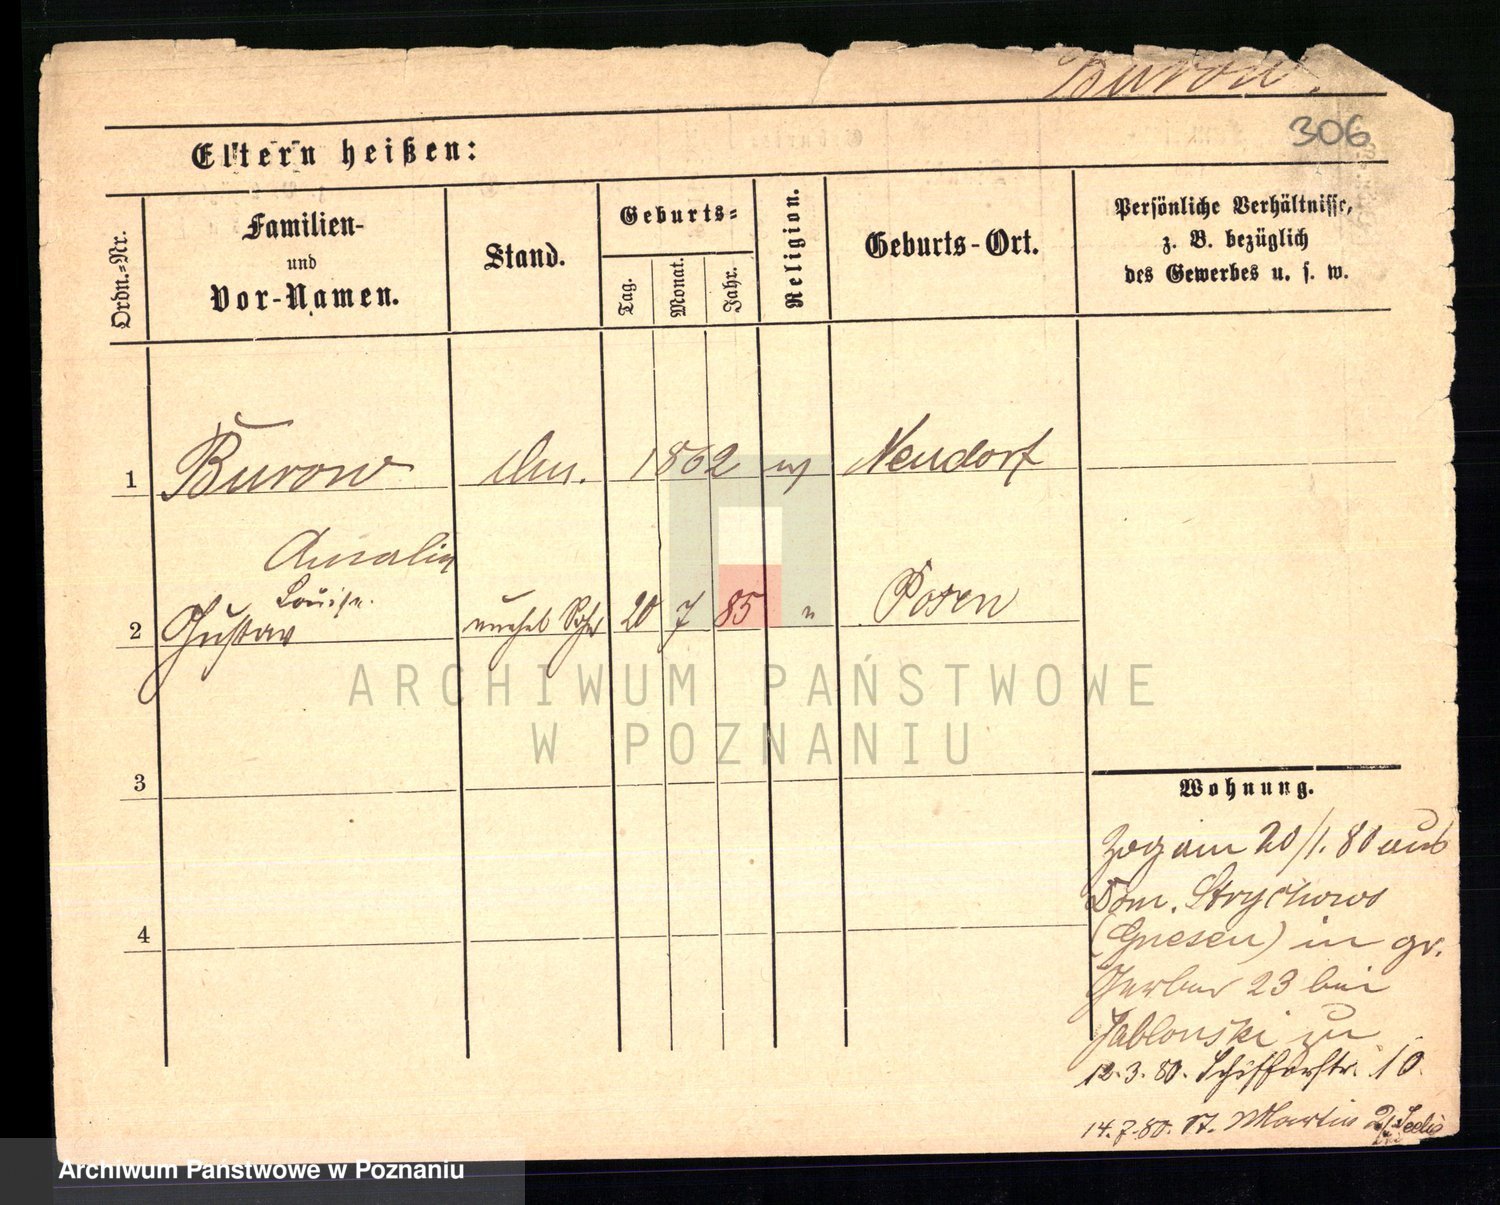 Burow.
306
Eltern heißen:
Ordn.-Nr.
Familien-
und
Vor-Namen.
Stand.
Geburts-
Tag.
Monat.
Jahr.
Religion.
Geburts-Ort.
Persönliche Verhältnisse,
z. B. bezüglich
des Gewerbes u. s. w.
1 Burow 1862 Neudorf
Amalia
Louise.
2 Gustav unehel 20 7 85 " Posen
ARCHIWUM PAŃSTWOWE
W POZNANIU
3
Wohnung.
Zog am 20/1. 80 aus
Dom. Strychowo
4
(Gnesen) in gr.
Gerber 23 bei
Jablonski zu
12.3.80. Schifferstr. 10.
14.7.80. St. Martin
Archiwum Państwowe w Poznaniu